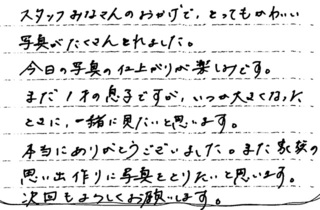 スタッフみなさんのおかげで、とってもかわいい
写真がたくさんとれました。
今日の写真の仕上がりが楽しみです。
まだ1才の息子ですが、いつか大きくなった
ときに、一緒に見たいと思います。
本当にありがとうございました。また家族の
思い出作りに写真をとりたいと思います。
次回もよろしくお願いします。